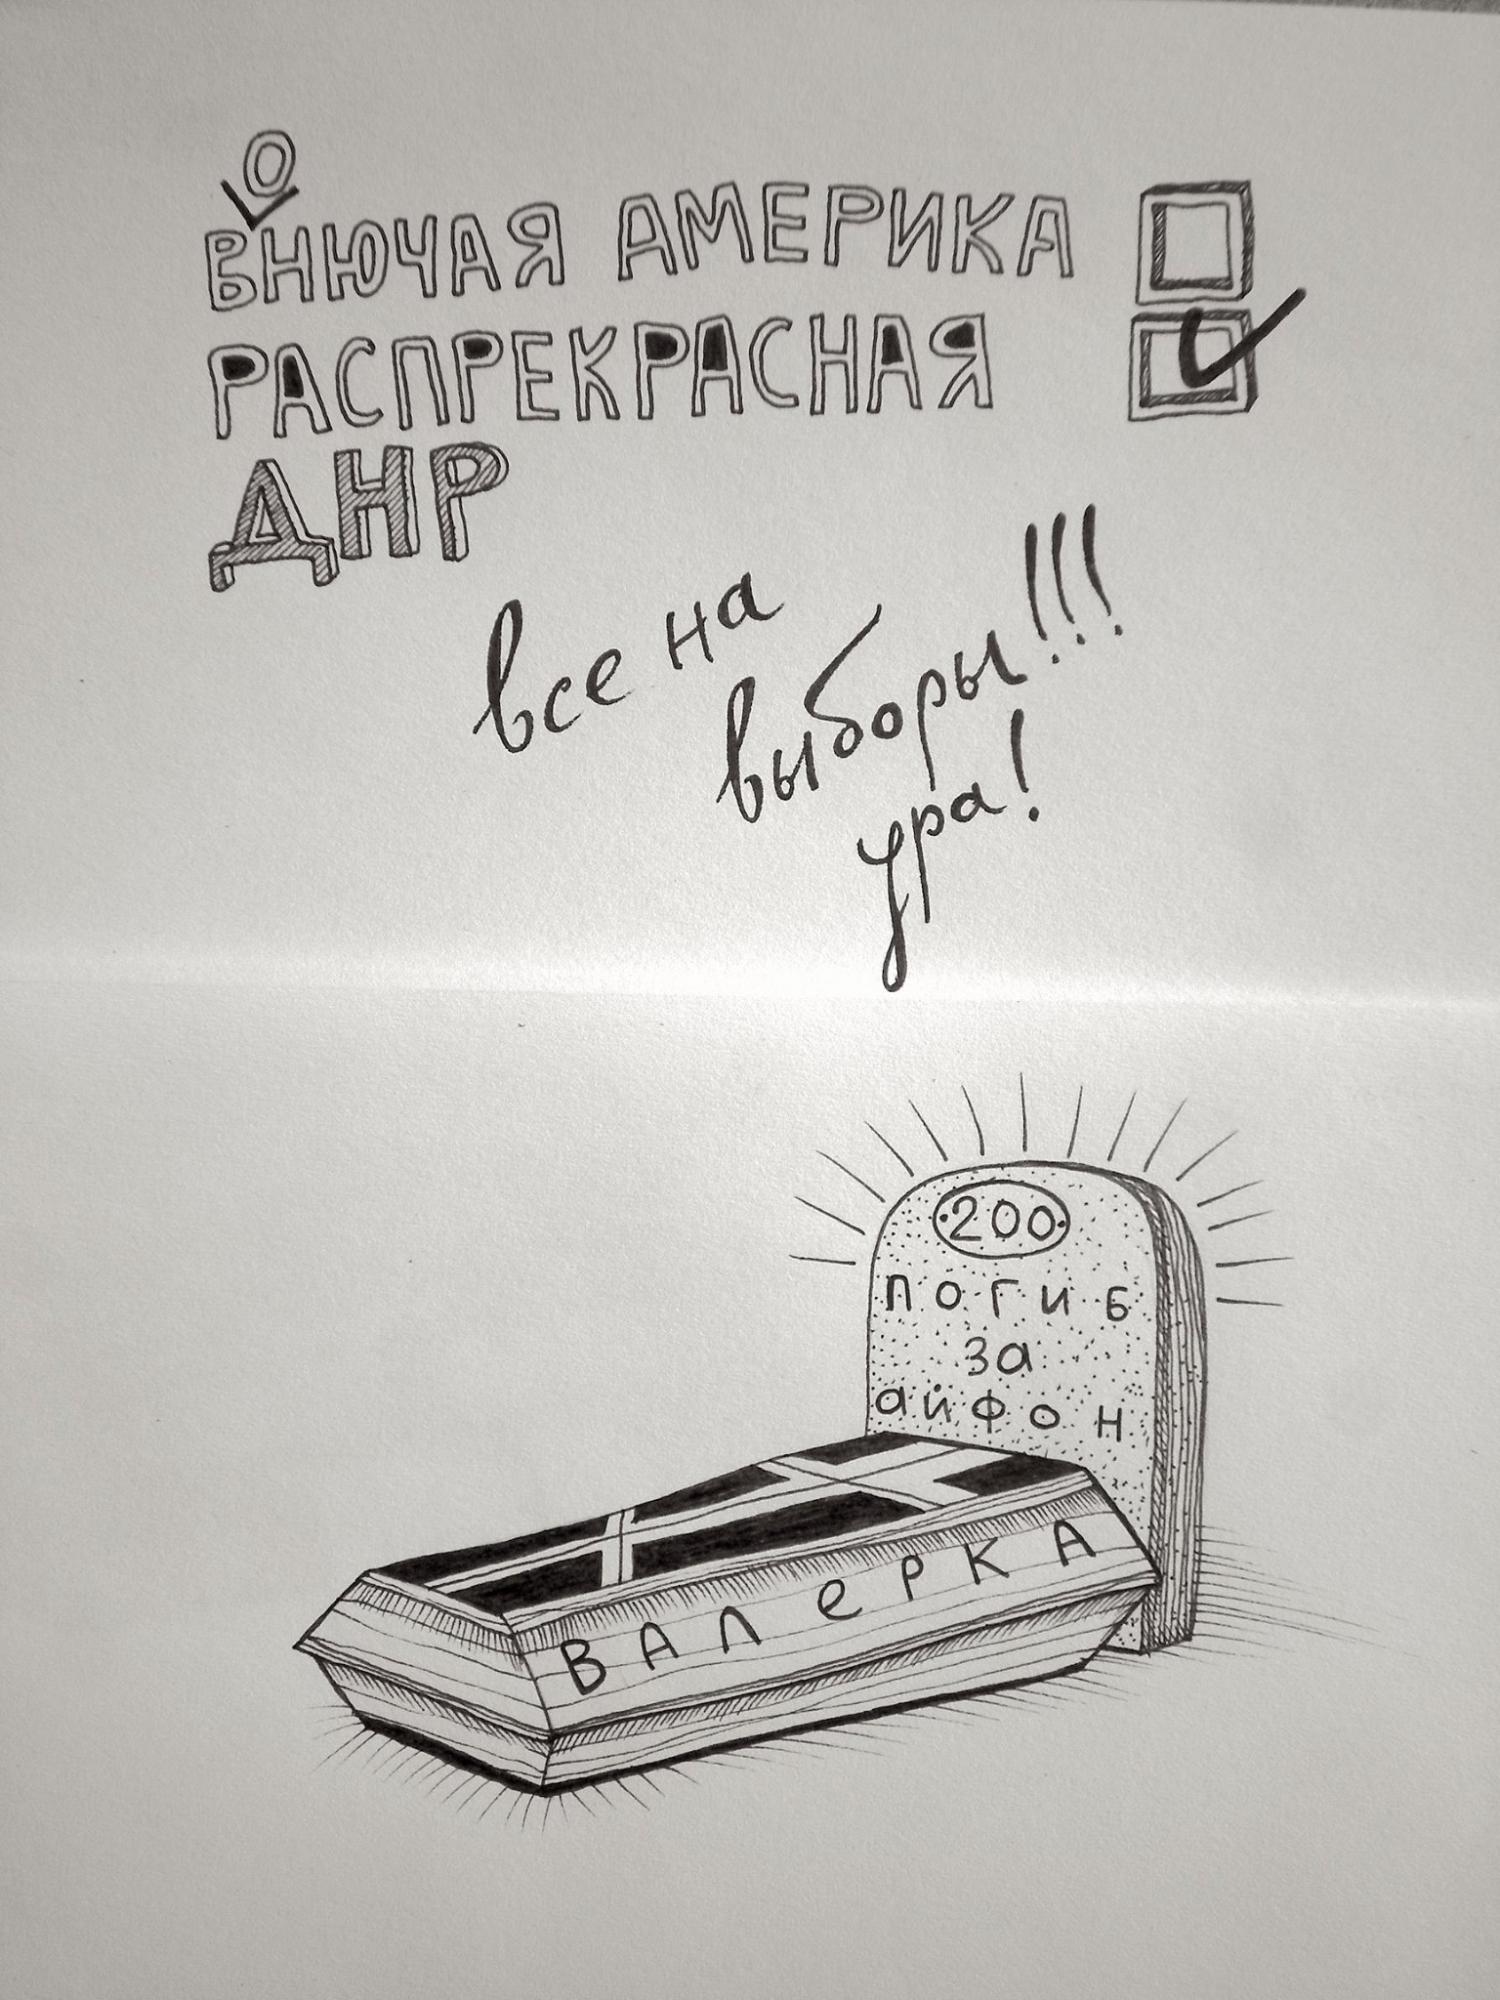 ВОНЮЧАЯ АМЕРИКА
РАСПРЕКРАСНАЯ
ДНР
все на
выборы!!!
ура!
200
погиб
за
айфон
ВАЛеРКА